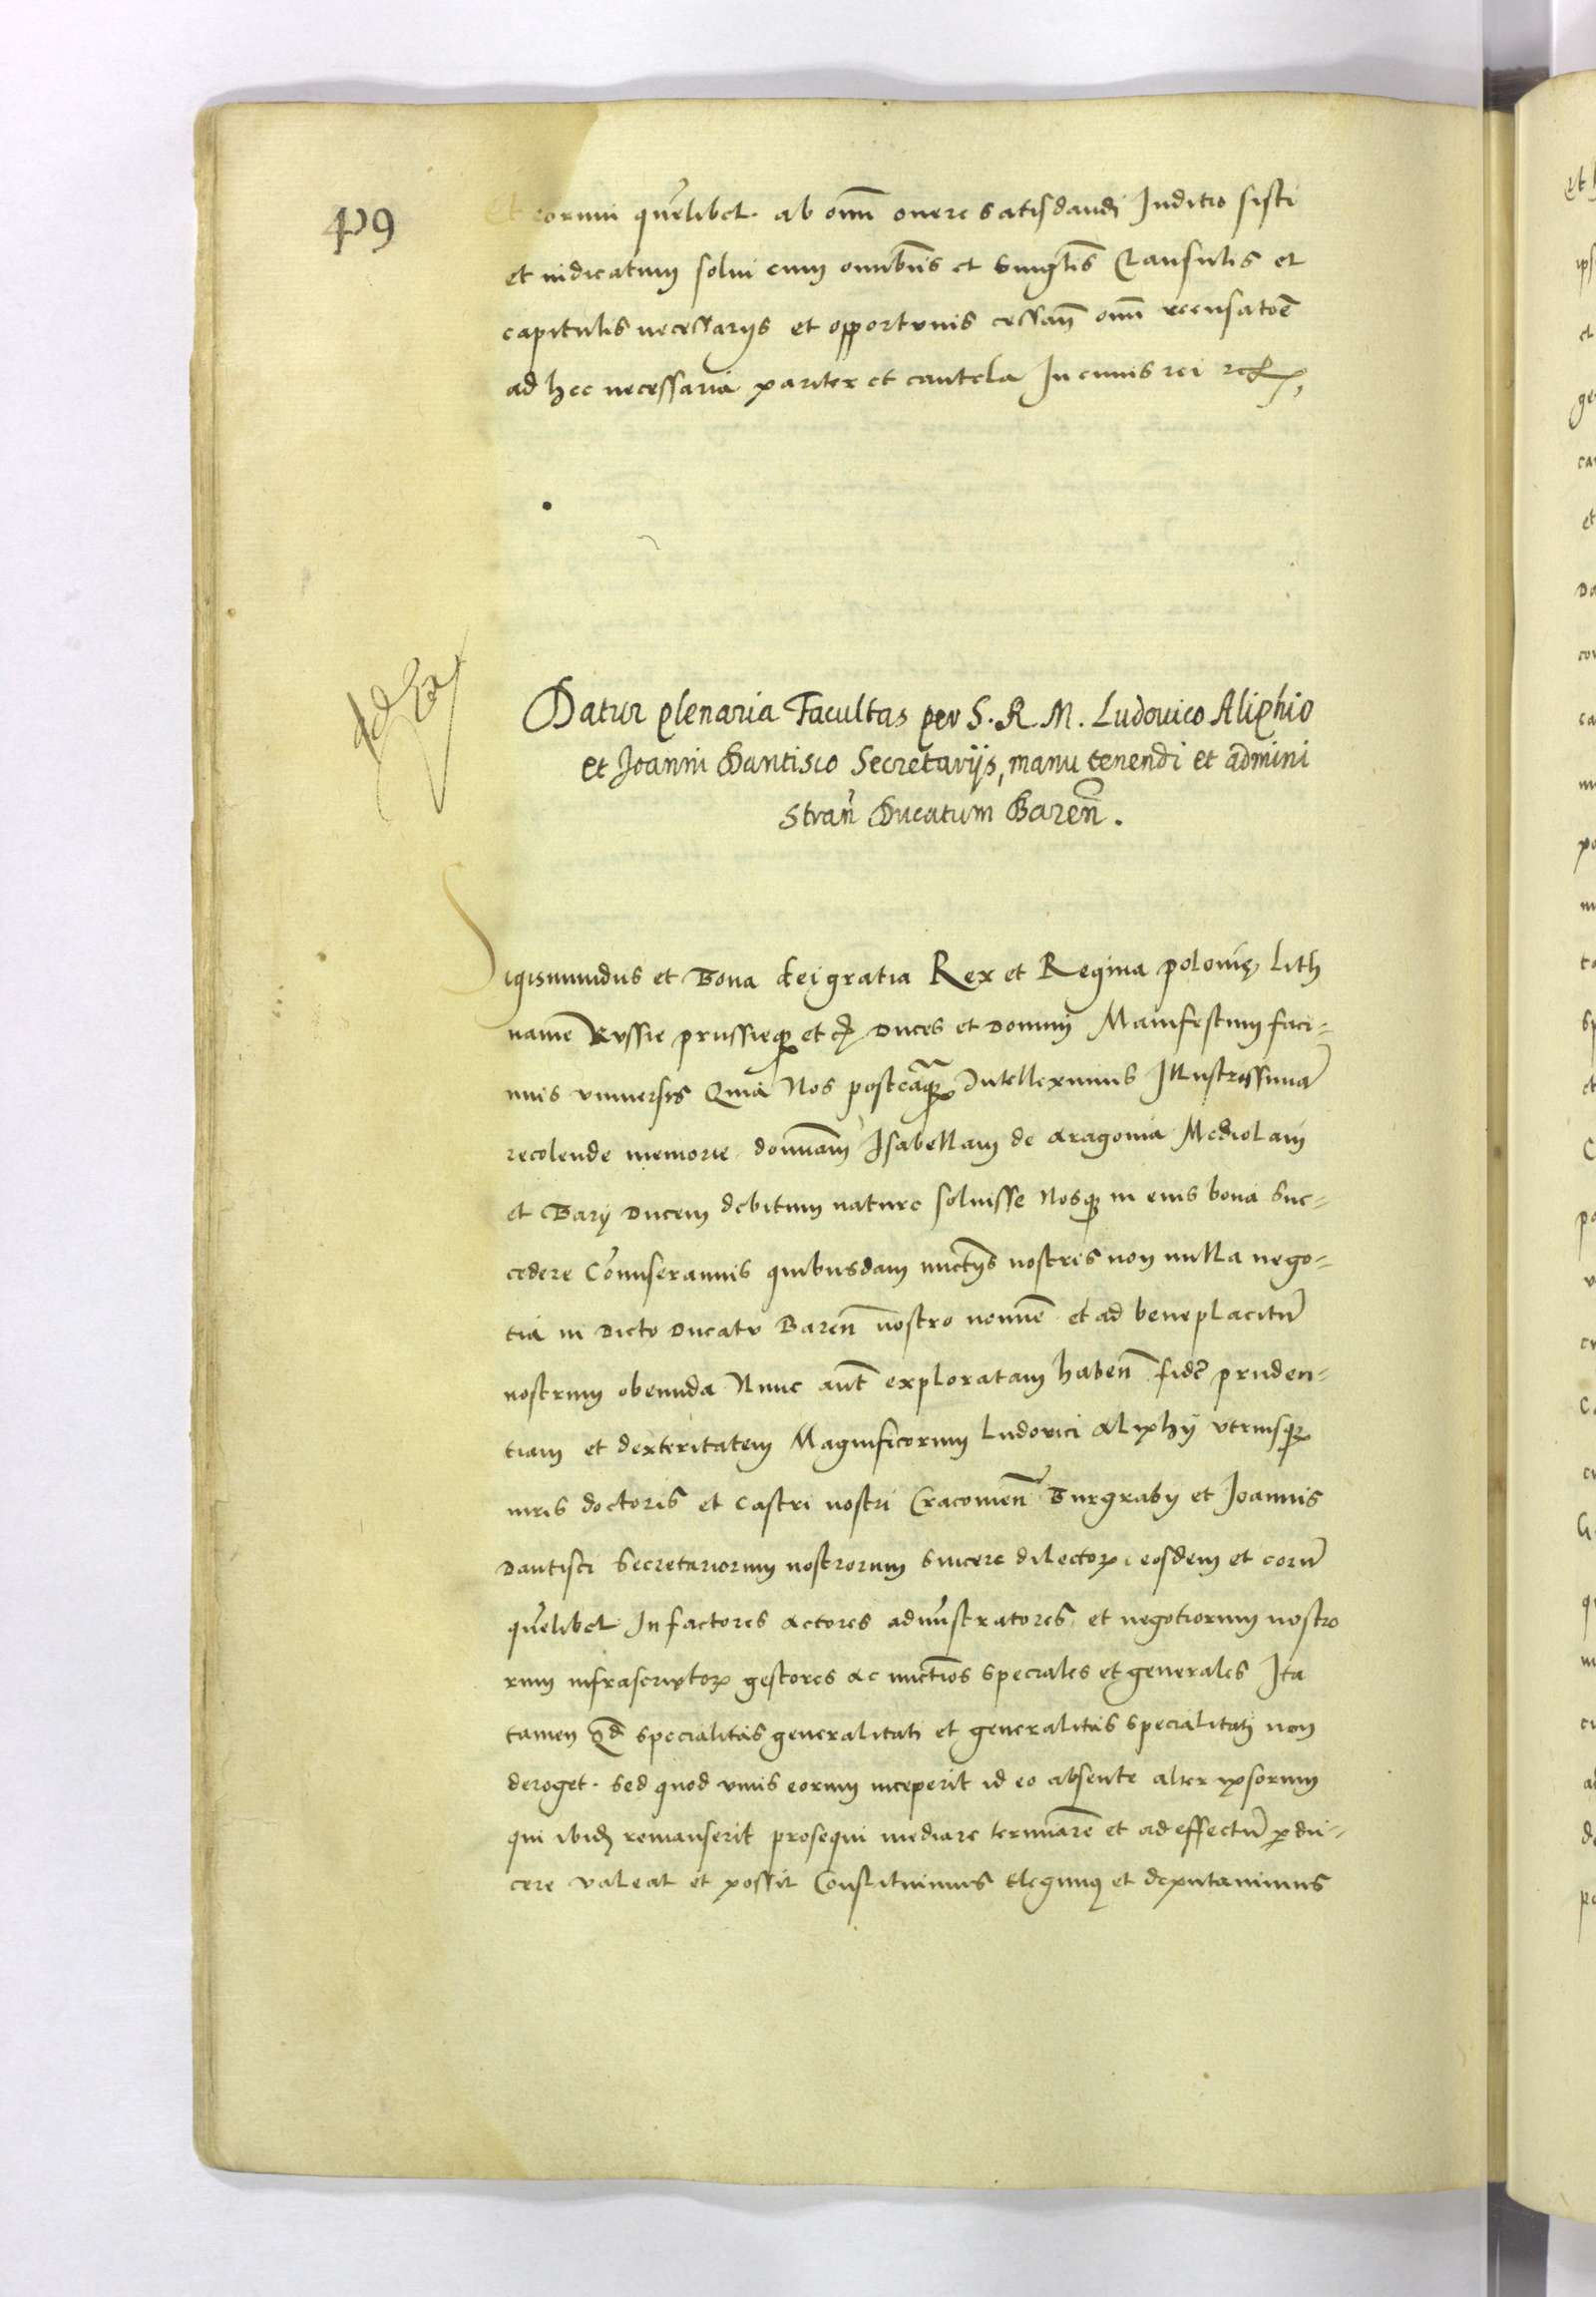 49
Et eorum quēlibet. ab omī onere satisdandj Juditio sisti
et iudicatum solui cum omnibus et singulis Clausulis et
capitulis necessarijs et opportunis cessan̄ omī recusatōe
ad hec necessaria pariter et cautela In cuius rei
Datur plenaria Facultas per S. R. M. Ludouico Aliphio
et Joanni Dantisco Secretarijs, manu tenendi et admini
stran̄ Ducatum Baren̄.
Sigismundus et Bona dei gratia Rex et Regina polonię, Lith
uanie Russie prussieqȝ et cȝ Duces et Domini Manifestum faci=
mus vniuersis Quia Nos posteaqȝ Intelleximus Illustrissimā
recolende memorie domīam Isabellam de Aragonia Mediolani
et Barij Ducem debitum nature soluisse Nosqȝ in eius bona suc=
cedere Comiseramus quibusdam nuctijs nostris non nulla nego=
tia in Dicto Ducatu Baren̄ nostro nomīe et ad beneplacitū
nostrum obeunda Nunc aut̄ exploratam haben̄ fidē pruden=
tiam et dexteritatem Magnificorum Ludovici Aliphij vtriusqȝ
iuris doctoris et Castri nostri Cracouien̄ Burgrabij et Joannis
Dantisci Secretariorum nostrorum sincere dilectorȝ eosdem et eorū
quēlibet In factores actores admīstratores et negotiorum nostro
rum infrascriptorȝ gestores ac nuctios speciales et generales Ita
tamen qd̄ specialitas generalitati et generalitas specialitati non
deroget. Sed quod vnus eorum inceperit id eo absente alter ipsorum
qui ibidȝ remanserit prosequi mediare termīare et ad effectū perdu=
cere valeat et possit Constituimus Elegimus et deputauimus